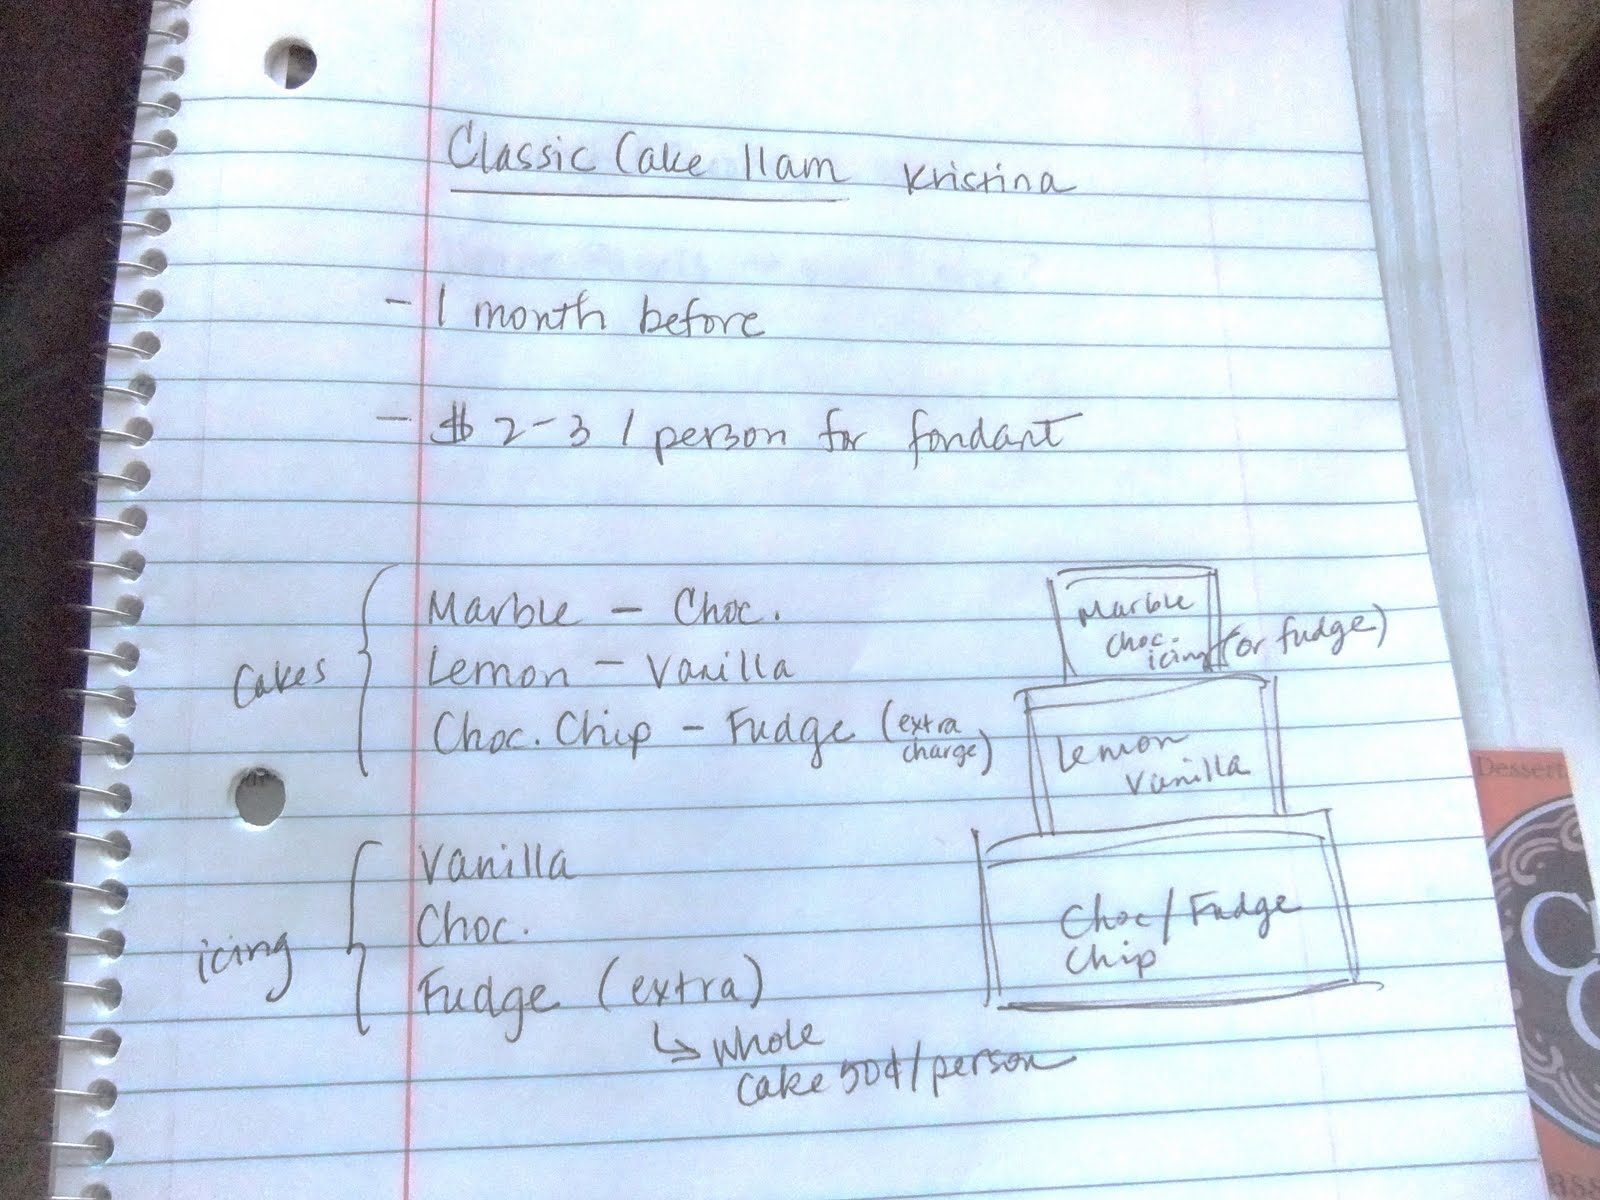 Classic Cake 11am Kristina
- 1 month before
- $ 2-3 / person for fondant
Cakes
Marble - Choc.
Lemon - Vanilla
Choc. Chip - Fudge (extra
charge)
Marble
Choc.
icing (or fudge)
Lemon
Vanilla
Choc/Fudge
Chip
icing
Vanilla
Choc.
Fudge (extra)
↳ whole
cake 50¢/person
Dessert